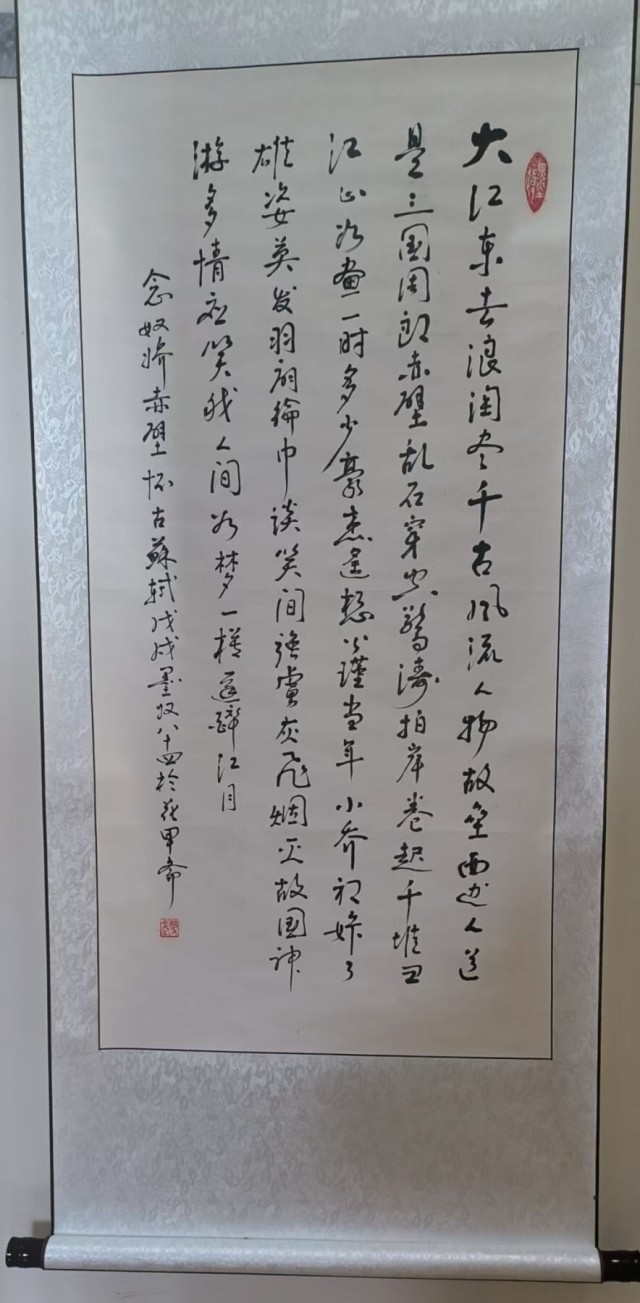 大江东去浪淘尽千古风流人物故垒西边人道
是三国周郎赤壁乱石穿空驚濤拍岸卷起千堆雪
江山如畫一时多少豪杰遥想公瑾当年小乔初嫁了
雄姿英发羽扇綸巾谈笑间強虜灰飞烟灭故国神
游多情应笑我人间如梦一樽還酹江月
念奴娇赤壁怀古蘇軾戊戌墨牧八十四於花甲斋